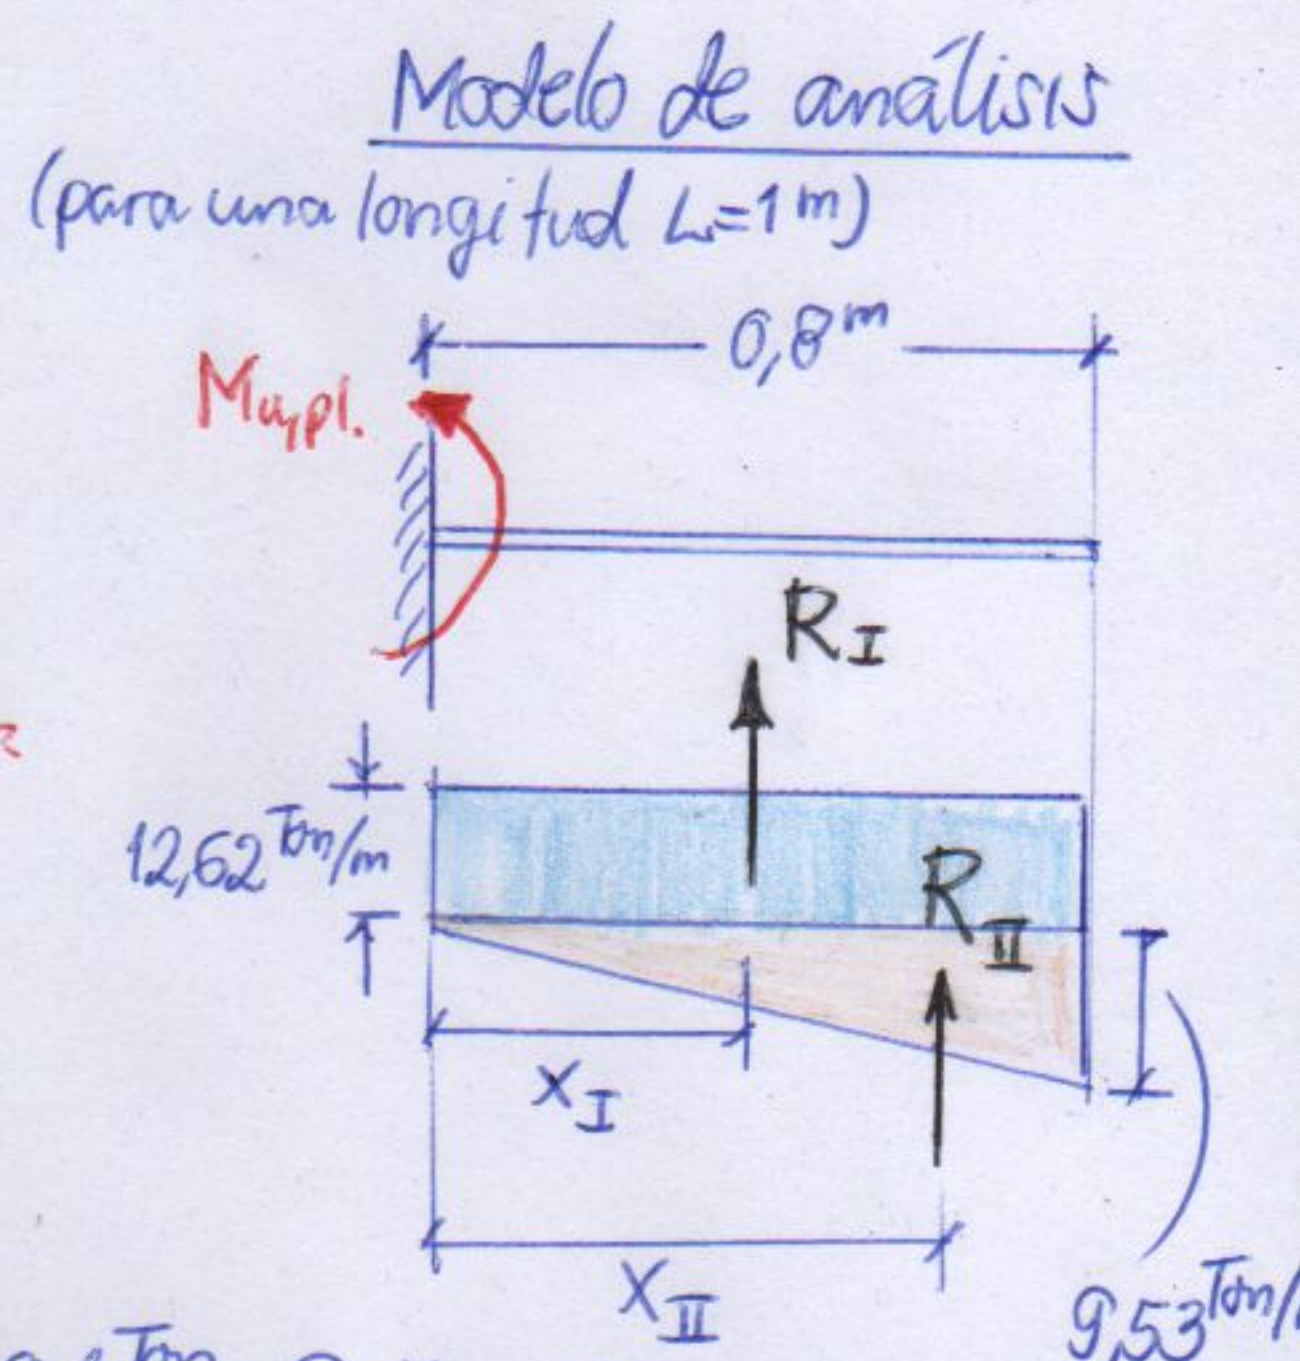 Modelo de análisis
(para una longitud L=1 m)
0,8 m
Mu,pl.
R I
12,62 Ton/m
R II
x I
x II
9,53 Ton/
Ton